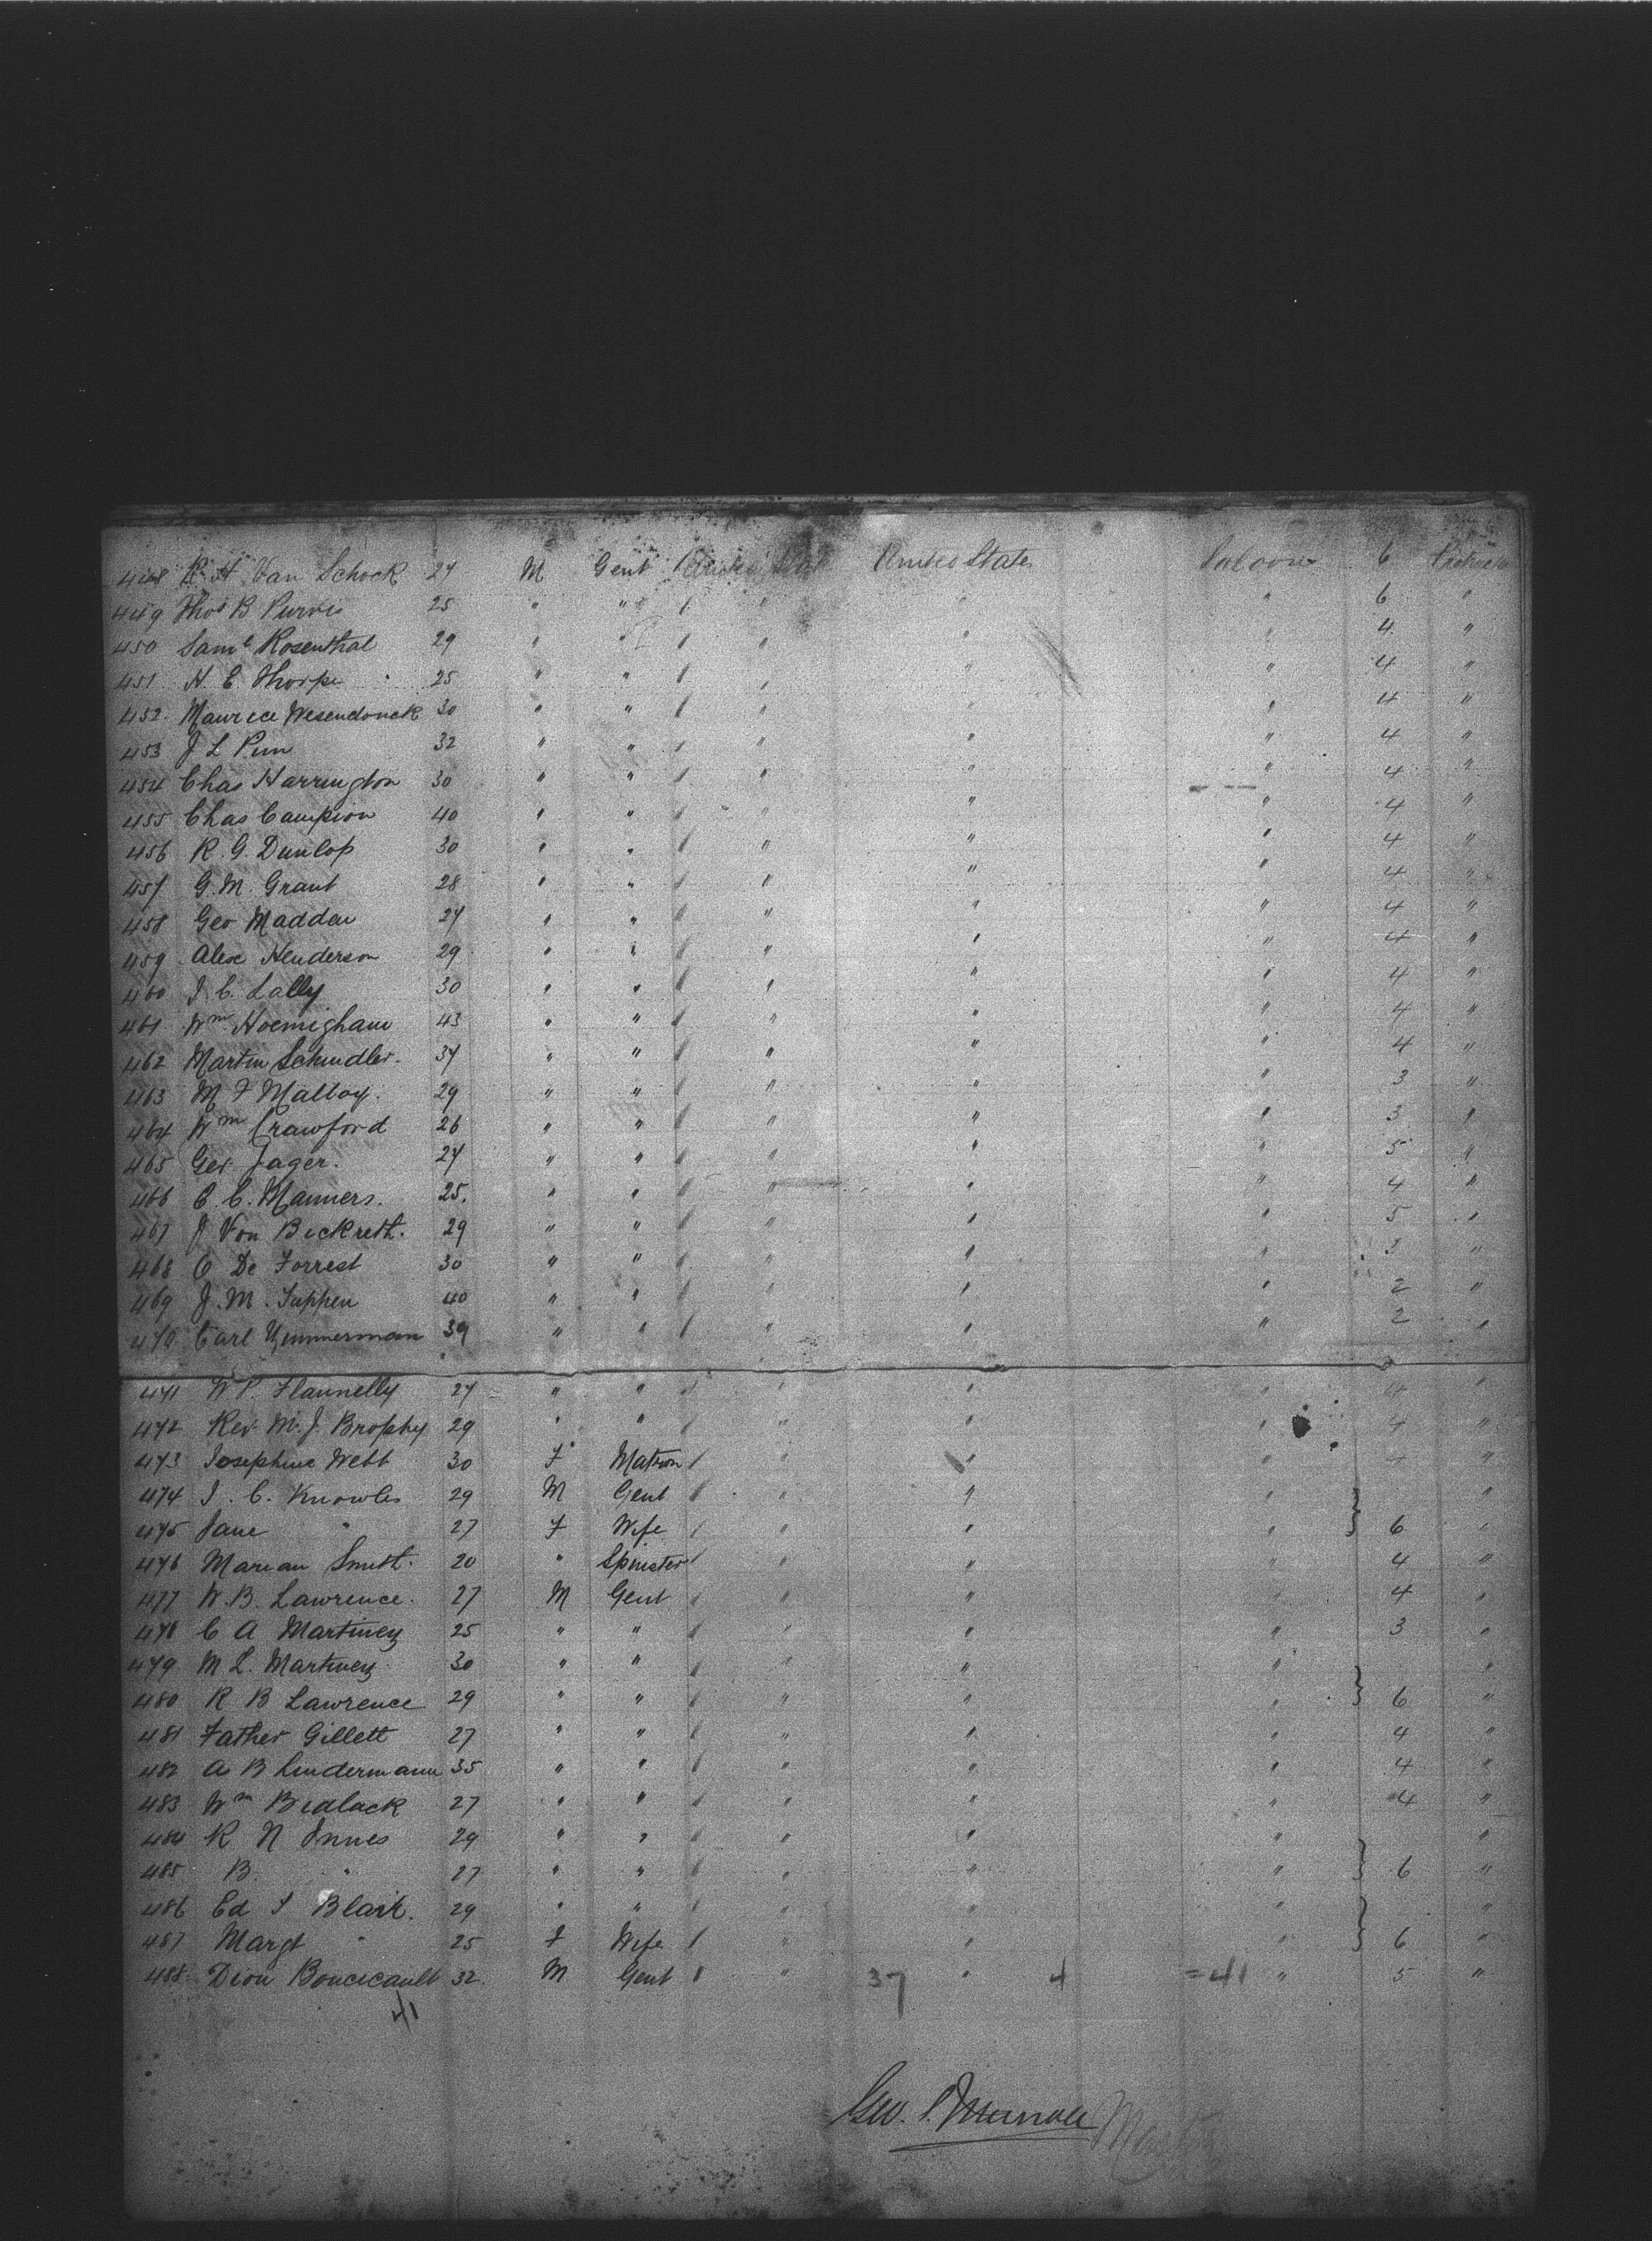 448 R. H. Van Schock 27 M Gent United States United States Saloon 6
449 Thos B Purvis 25 " " / " " " 6 "
450 Saml Rosenthal 29 " " / " " " 4 "
451 H. E. Thorpe 25 " " / " " " 4 "
452 Maurice Wesendonck 30 " " / " " " 4 "
453 J L Pim 32 " " / " " " 4 "
454 Chas Harrington 30 " " / " " " 4 "
455 Chas Campion 40 " " / " " " 4 "
456 R. G. Dunlop 30 " " / " " " 4 "
457 G. M. Grant 28 " " / " " " 4 "
458 Geo Madden 27 " " / " " " 4 "
459 Alex Henderson 29 " " / " " " 4 "
460 J. C. Lally 30 " " / " " " 4 "
461 Wm Hoemigham 43 " " / " " " 4 "
462 Martin Schindler 37 " " / " " " 4 "
463 M F Malloy 29 " " / " " " 3 "
464 Wm Crawford 26 " " / " " " 3 "
465 Geo Jager 27 " " / " " " 5 "
466 C. C. Manners 25 " " / " " " 4 "
467 J Von Beckreth 29 " " / " " " 5 "
468 O De Forrest 30 " " / " " " 3 "
469 J. M. Tuppen 40 " " / " " " 2 "
470 Carl Zimmerman 39 " " / " " " 2 "
471 W P. Flannelly 27 " " / " " " 4 "
472 Rev. M. J. Brophy 29 " " / " " " 4 "
473 Josephine Webb 30 F Matron / " " " 4 "
474 J. C. Knowles 29 M Gent / " " " "
475 Jane " 27 F Wife / " " " 6 "
476 Marian Smith 20 " Spinster / " " " 4 "
477 W. B. Lawrence 27 M Gent / " " " 4 "
478 C A Martinez 25 " " / " " " 3 "
479 M L. Martinez 30 " " / " " " "
480 R B Lawrence 29 " " / " " " 6 "
481 Father Gillett 27 " " / " " " 4 "
482 A B Lindermann 35 " " / " " " 4 "
483 Wm Bidlack 27 " " / " " " 4 "
484 R N Innes 29 " " / " " " "
485 B. " 27 " " / " " " 6 "
486 Ed S Blair 29 " " / " " " "
487 Margt " 25 F Wife / " " " 6 "
488 Dion Boucicault 32 M Gent / " 37 " 4 =41 " 5 "
41
Geo. P.